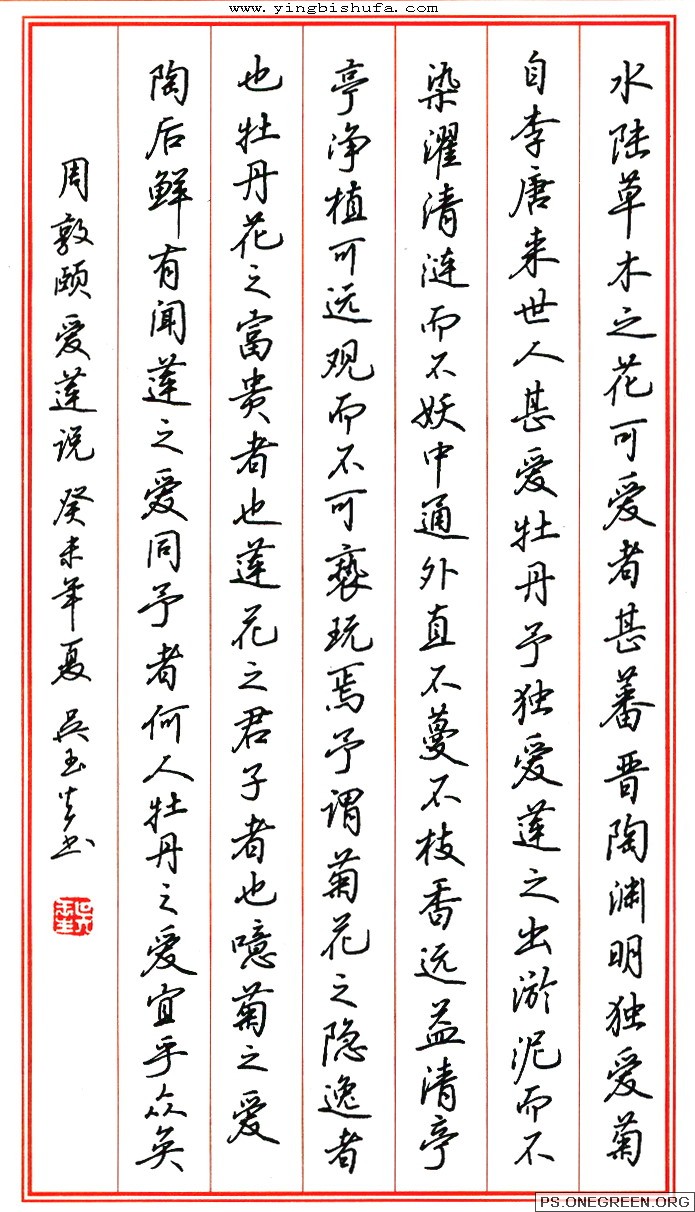 www.yingbishufa.com
水陆草木之花可爱者甚蕃晋陶渊明独爱菊
自李唐来世人甚爱牡丹予独爱莲之出淤泥而不
染濯清涟而不妖中通外直不蔓不枝香远益清亭
亭净植可远观而不可亵玩焉予谓菊花之隐逸者
也牡丹花之富贵者也莲花之君子者也噫菊之爱
陶后鲜有闻莲之爱同予者何人牡丹之爱宜乎众矣
周敦颐爱莲说 癸未年夏 吴玉生书
PS.ONEGREEN.ORG